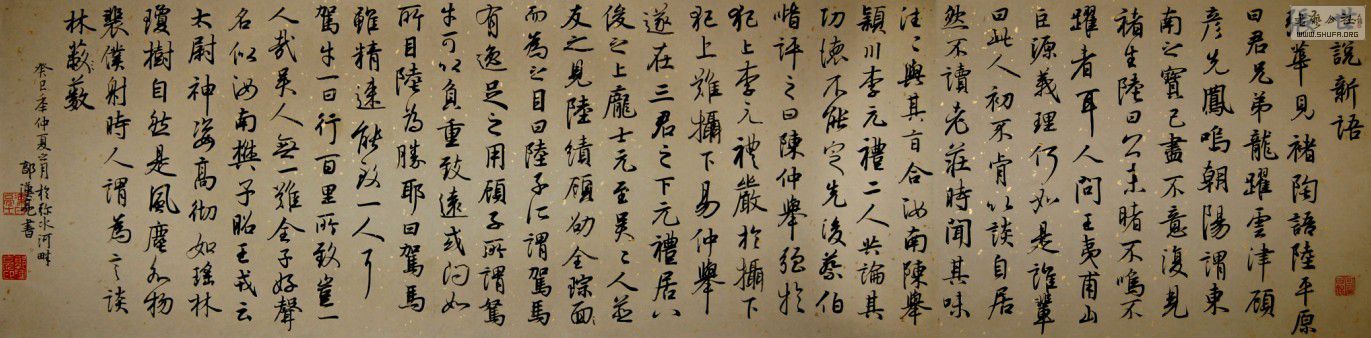 世說新語
張華見褚陶語陸平原
曰君兄弟龍躍雲津顧
彥先鳳鳴朝陽謂東
南之寶已盡不意復見
褚生陸曰公未睹不鳴不
躍者耳人問王夷甫山
巨源義理何如是誰輩
曰此人初不肯以談自居
然不讀老莊時聞其咏
往往與其旨合汝南陳舉
潁川李元禮二人共論其
功德不能定先後蔡伯
喈評之曰陳仲舉強於
犯上李元禮嚴於攝下
犯上難攝下易仲舉
遂在三君之下元禮居八
俊之上龐士元至吳吳人並
友之見陸績顧劭全琮而
而為之目曰陸子所謂駑馬
有逸足之用顧子所謂駑
牛可以負重致遠或問如
所目陸為勝耶曰駑馬
雖精速能致一人耳
駑牛一日行百里所致豈一
人哉吳人無難全子好聲
名似汝南樊子昭王戎云
太尉神姿高徹如瑤林
瓊樹自然是風塵外物
裴僕射時人謂為言談
林藪
癸巳年仲夏六月於弥水河畔
WWW.SHUFA.ORG